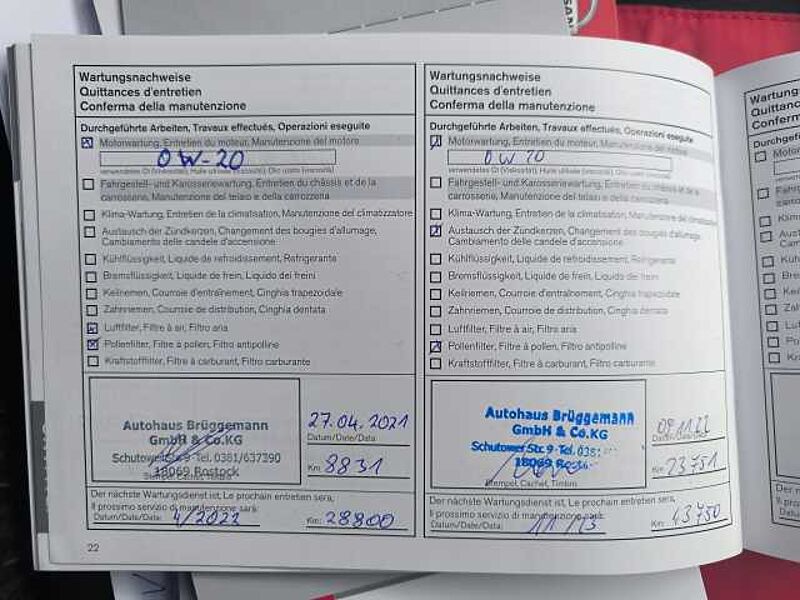 SAN
Wartungsnachweise
Quittances d'entretien
Conferma della manutenzione
Durchgeführte Arbeiten, Travaux effectués, Operazioni eseguite
Motorwartung, Entretien du moteur, Manutenzione del motore
0W-20
verwendetes Öl (Viskosität), Huile utilisée (viscosité), Olio usato (viscosità)
Fahrgestell- und Karosseriewartung, Entretien du châssis et de la
carrosserie, Manutenzione del telaio e della carrozzeria
Klima-Wartung, Entretien de la climatisation, Manutenzione del climatizzatore
Austausch der Zündkerzen, Changement des bougies d'allumage,
Cambiamento delle candele d'accensione
Kühlflüssigkeit, Liquide de refroidissement, Refrigerante
Bremsflüssigkeit, Liquide de frein, Liquido dei freini
Keilriemen, Courroie d'entraînement, Cinghia trapezoidale
Zahnriemen, Courroie de distribution, Cinghia dentata
Luftfilter, Filtre à air, Filtro aria
Pollenfilter, Filtre à pollen, Filtro antipolline
Kraftstofffilter, Filtre à carburant, Filtro carburante
Autohaus Brüggemann
GmbH & Co.KG
Schutower Str. 9 · Tel. 0381/637390
18069 Rostock
Stempel, Cachet, Timbro
27.04.2021
Datum/Date/Data
Km: 8831
Der nächste Wartungsdienst ist, Le prochain entretien sera,
Il prossimo servizio di manutenzione sarà:
Datum/Date/Data: 4/2022
Km: 28800
22
Wartungsnachweise
Quittances d'entretien
Conferma della manutenzione
Durchgeführte Arbeiten, Travaux effectués, Operazioni eseguite
Motorwartung, Entretien du moteur, Manutenzione del motore
0W20
verwendetes Öl (Viskosität), Huile utilisée (viscosité), Olio usato (viscosità)
Fahrgestell- und Karosseriewartung, Entretien du châssis et de la
carrosserie, Manutenzione del telaio e della carrozzeria
Klima-Wartung, Entretien de la climatisation, Manutenzione del climatizzatore
Austausch der Zündkerzen, Changement des bougies d'allumage,
Cambiamento delle candele d'accensione
Kühlflüssigkeit, Liquide de refroidissement, Refrigerante
Bremsflüssigkeit, Liquide de frein, Liquido dei freini
Keilriemen, Courroie d'entraînement, Cinghia trapezoidale
Zahnriemen, Courroie de distribution, Cinghia dentata
Luftfilter, Filtre à air, Filtro aria
Pollenfilter, Filtre à pollen, Filtro antipolline
Kraftstofffilter, Filtre à carburant, Filtro carburante
Autohaus Brüggemann
GmbH & Co.KG
Schutower Str. 9 · Tel. 0381
18069
Stempel, Cachet, Timbro
09.11.22
Datum/Date/Data
Km: 23751
Der nächste Wartungsdienst ist, Le prochain entretien sera,
Il prossimo servizio di manutenzione sarà:
Datum/Date/Data:
Km: 43750